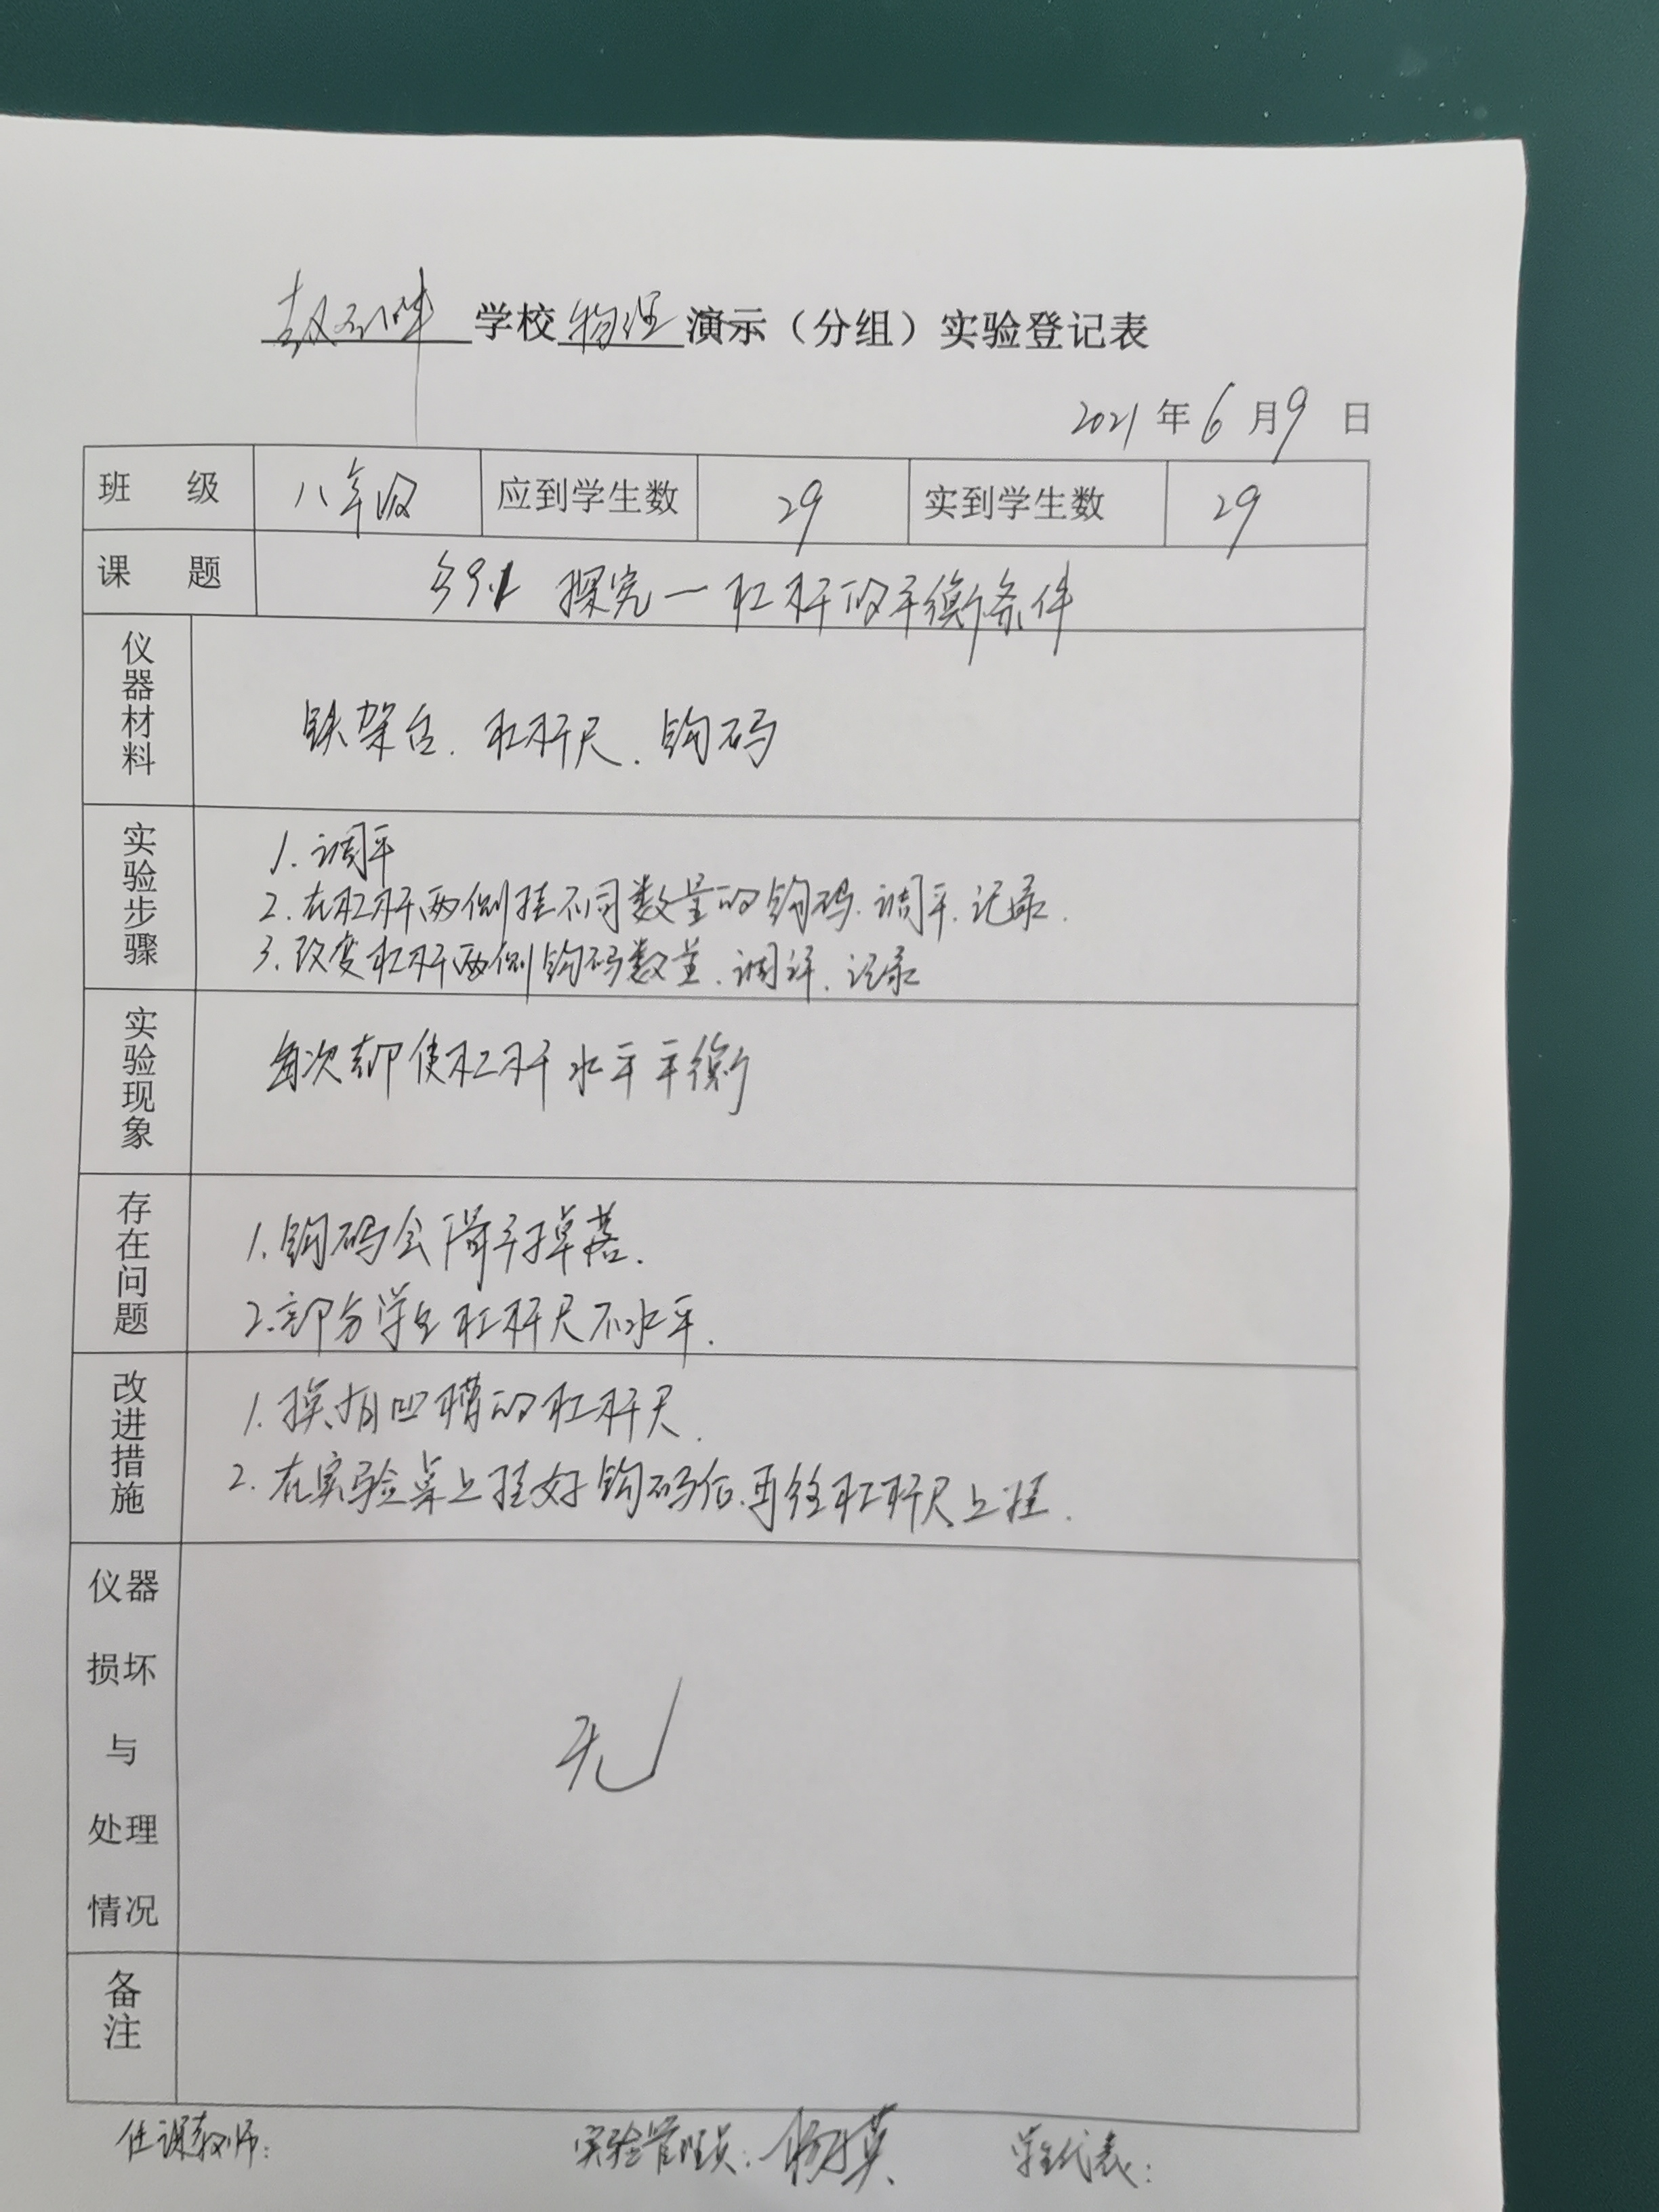 学校物理演示（分组）实验登记表
2021年6月9日
班 级 八年级 应到学生数 29 实到学生数 29
课 题 探究一杠杆的平衡条件
仪器材料 铁架台.杠杆尺.钩码
实验步骤
1.调平
2.在杠杆两侧挂不同数量的钩码.调平.记录.
3.改变杠杆两侧钩码数量.调评.记录
实验现象 每次都使杠杆水平平衡
存在问题
1.钩码会掉落.
2.部分学生杠杆尺不水平.
改进措施
1.换有凹槽的杠杆尺.
2.在实验桌上挂好钩码后.再往杠杆尺上挂.
仪器损坏与处理情况 无
备注
任课教师: 实验管理员: 学生代表: